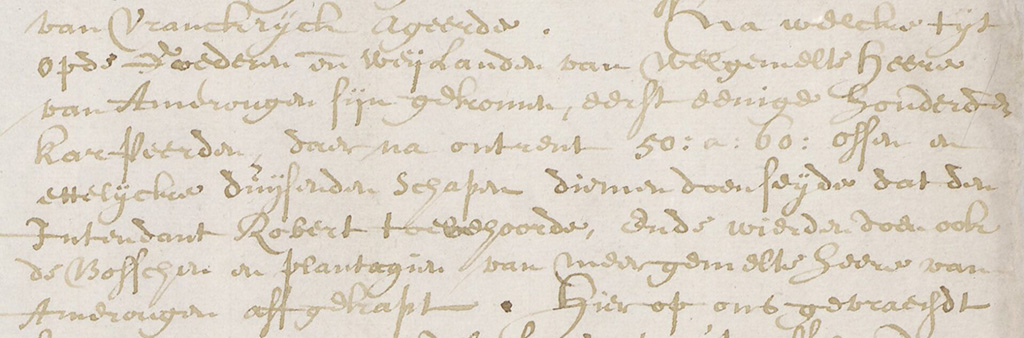 van Vranckryck ageerde. Na welcke tyt
opde Foederen en weylanden van welgemelte heere
van Amerongen sijn gekomen, eerst eenige honderden
karpeerden, daer na ontrent 50: a: 60: ossen en
ettelycke duijsenden schapen diemen doen seyde dat den
Intendant Robert toebehoorde, ende wierden doen ook
de Bosschen en plantagien van meergemelte heere van
Amerongen affgekapt. Hier op ons gevraecht